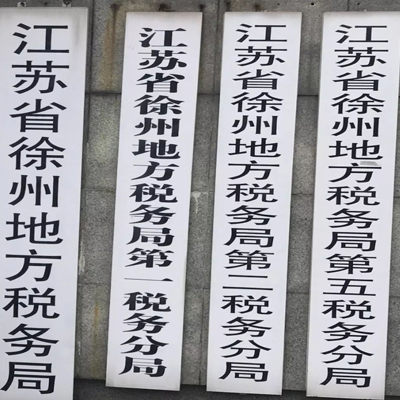 江苏省徐州地方税务局
江苏省徐州地方税务局第一税务分局
江苏省徐州地方税务局第二税务分局
江苏省徐州地方税务局第五税务分局